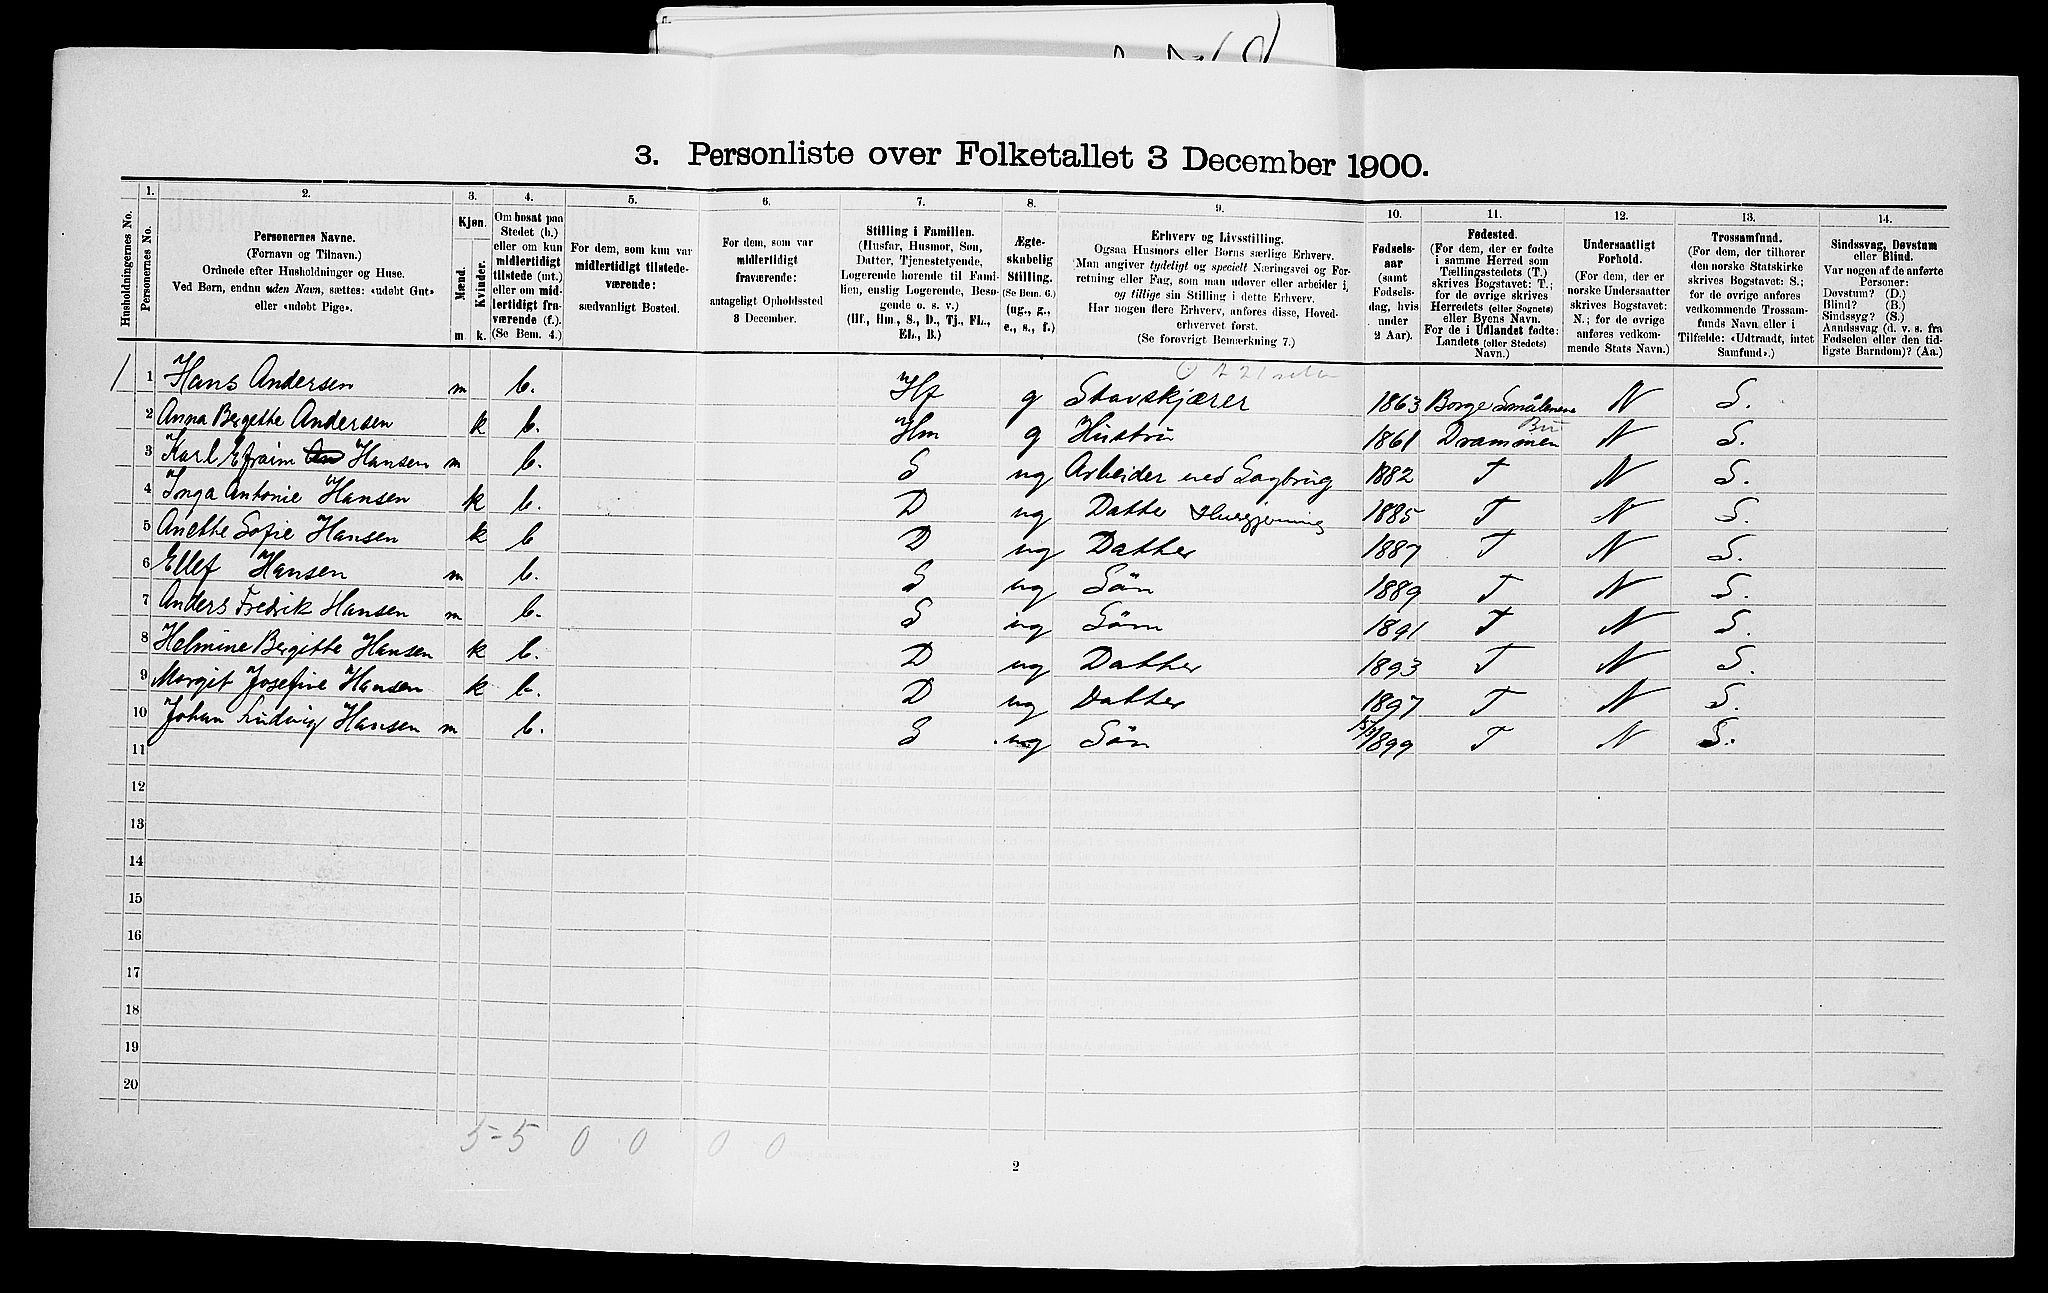 3. Personliste over Folketallet 3 December 1900.
1. 2. 3. 4. 5. 6. 7. 8. 9. 10. 11. 12. 13. 14.
Husholdningernes No.
Personernes No.
Personernes Navne.
(Fornavn og Tilnavn.)
Ordnede efter Husholdninger og Huse.
Ved Børn, endnu uden Navn, sættes: «udøbt Gut»
eller «udøbt Pige».
Kjøn.
Mænd.
Kvinder.
m k.
Om bosat paa
Stedet (b.)
eller om kun
midlertidigt
tilstede (mt.)
eller om mid-
lertidigt fra-
værende (f.).
(Se Bem. 4.)
For dem, som kun var
midlertidigt tilstede-
værende:
sædvanligt Bosted.
For dem, som var
midlertidigt
fraværende:
antageligt Opholdssted
3 December.
Stilling i Familien.
(Husfar, Husmor, Søn,
Datter, Tjenestetyende,
Logerende hørende til Fami-
lien, enslig Logerende, Besø-
gende o. s. v.)
(Hf., Hm., S., D., Tj., FL.,
EL., B.)
Ægte-
skabelig
Stilling.
(Se Bem. 6.)
(ug., g.,
e., s., f.)
Erhverv og Livsstilling.
Ogsaa Husmors eller Børns særlige Erhverv.
Man angiver tydeligt og specielt Næringsvei og For-
retning eller Fag, som man udøver eller arbeider i,
og tillige sin Stilling i dette Erhverv.
Har nogen flere Erhverv, anføres disse, Hoved-
erhvervet først.
(Se forøvrigt Bemærkning 7.)
Fødsels-
aar
(samt
Fødsels-
dag, hvis
under
2 Aar).
Fødested.
(For dem, der er fødte
i samme Herred som
Tællingsstedets (T.)
skrives Bogstavet: T.;
for de øvrige skrives
Herredets (eller Sognets)
eller Byens Navn.
For de i Udlandet fødte:
Landets (eller Stedets)
Navn.)
Undersaatligt
Forhold.
(For dem, der er
norske Undersaatter
skrives Bogstavet:
N.; for de øvrige
anføres vedkom-
mende Stats Navn.)
Trossamfund.
(For dem, der tilhører
den norske Statskirke
skrives Bogstavet: S.;
for de øvrige anføres
vedkommende Trossam-
funds Navn eller i
Tilfælde: «Udtraadt, intet
Samfund».)
Sindssvag, Døvstum
eller Blind.
Var nogen af de anførte
Personer:
Døvstum? (D.)
Blind? (B.)
Sindssyg? (S.)
Aandssvag (d. v. s. fra
Fødselen eller den tid-
ligste Barndom)? (Aa.)
1 1 Hans Andersen m b. Hf g Stavskjærer 1863 Borge Smålenene N S.
2 Anna Bergethe Andersen k b. Hm g Hustru 1861 Drammen By N S.
3 Karl Efraim An Hansen m b. S ug Arbeider ved Sagbrug 1882 T N S.
4 Inga Antonie Hansen k b. D ug Datter Husgjerning 1885 T N S.
5 Anette Sofie Hansen k b D ug Datter 1887 T N S.
6 Ellef Hansen m b. S ug Sön 1889 T N S.
7 Anders Fredrik Hansen m b. S ug Sön 1891 T N S.
8 Helmine Bergitte Hansen k b. D ug Datter 1893 T N S.
9 Margit Josefine Hansen k b. D ug Datter 1897 T N S.
10 Johan Ludvig Hansen m b. S ug Sön 1899 T N S.
11
12
13
14
15
16
17
18
19
20
5-5 0 0 0 0
2